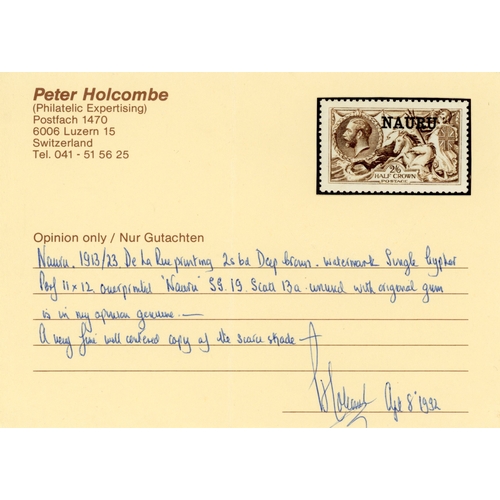 Peter Holcombe
(Philatelic Expertising)
Postfach 1470
6006 Luzern 15
Switzerland
Tel. 041 - 51 56 25
NAURU
2/6
HALF CROWN
POSTAGE
Opinion only / Nur Gutachten
Nauru. 1913/23 De La Rue printing 2s6d Deep brown. watermark Single Cypher
Perf 11 x 12 overprinted 'Nauru' SG. 19. Scott 13a. unused with original gum
is in my opinion genuine. —
A very fine well centered copy of the scarce shade —
P Holcombe 8 1992